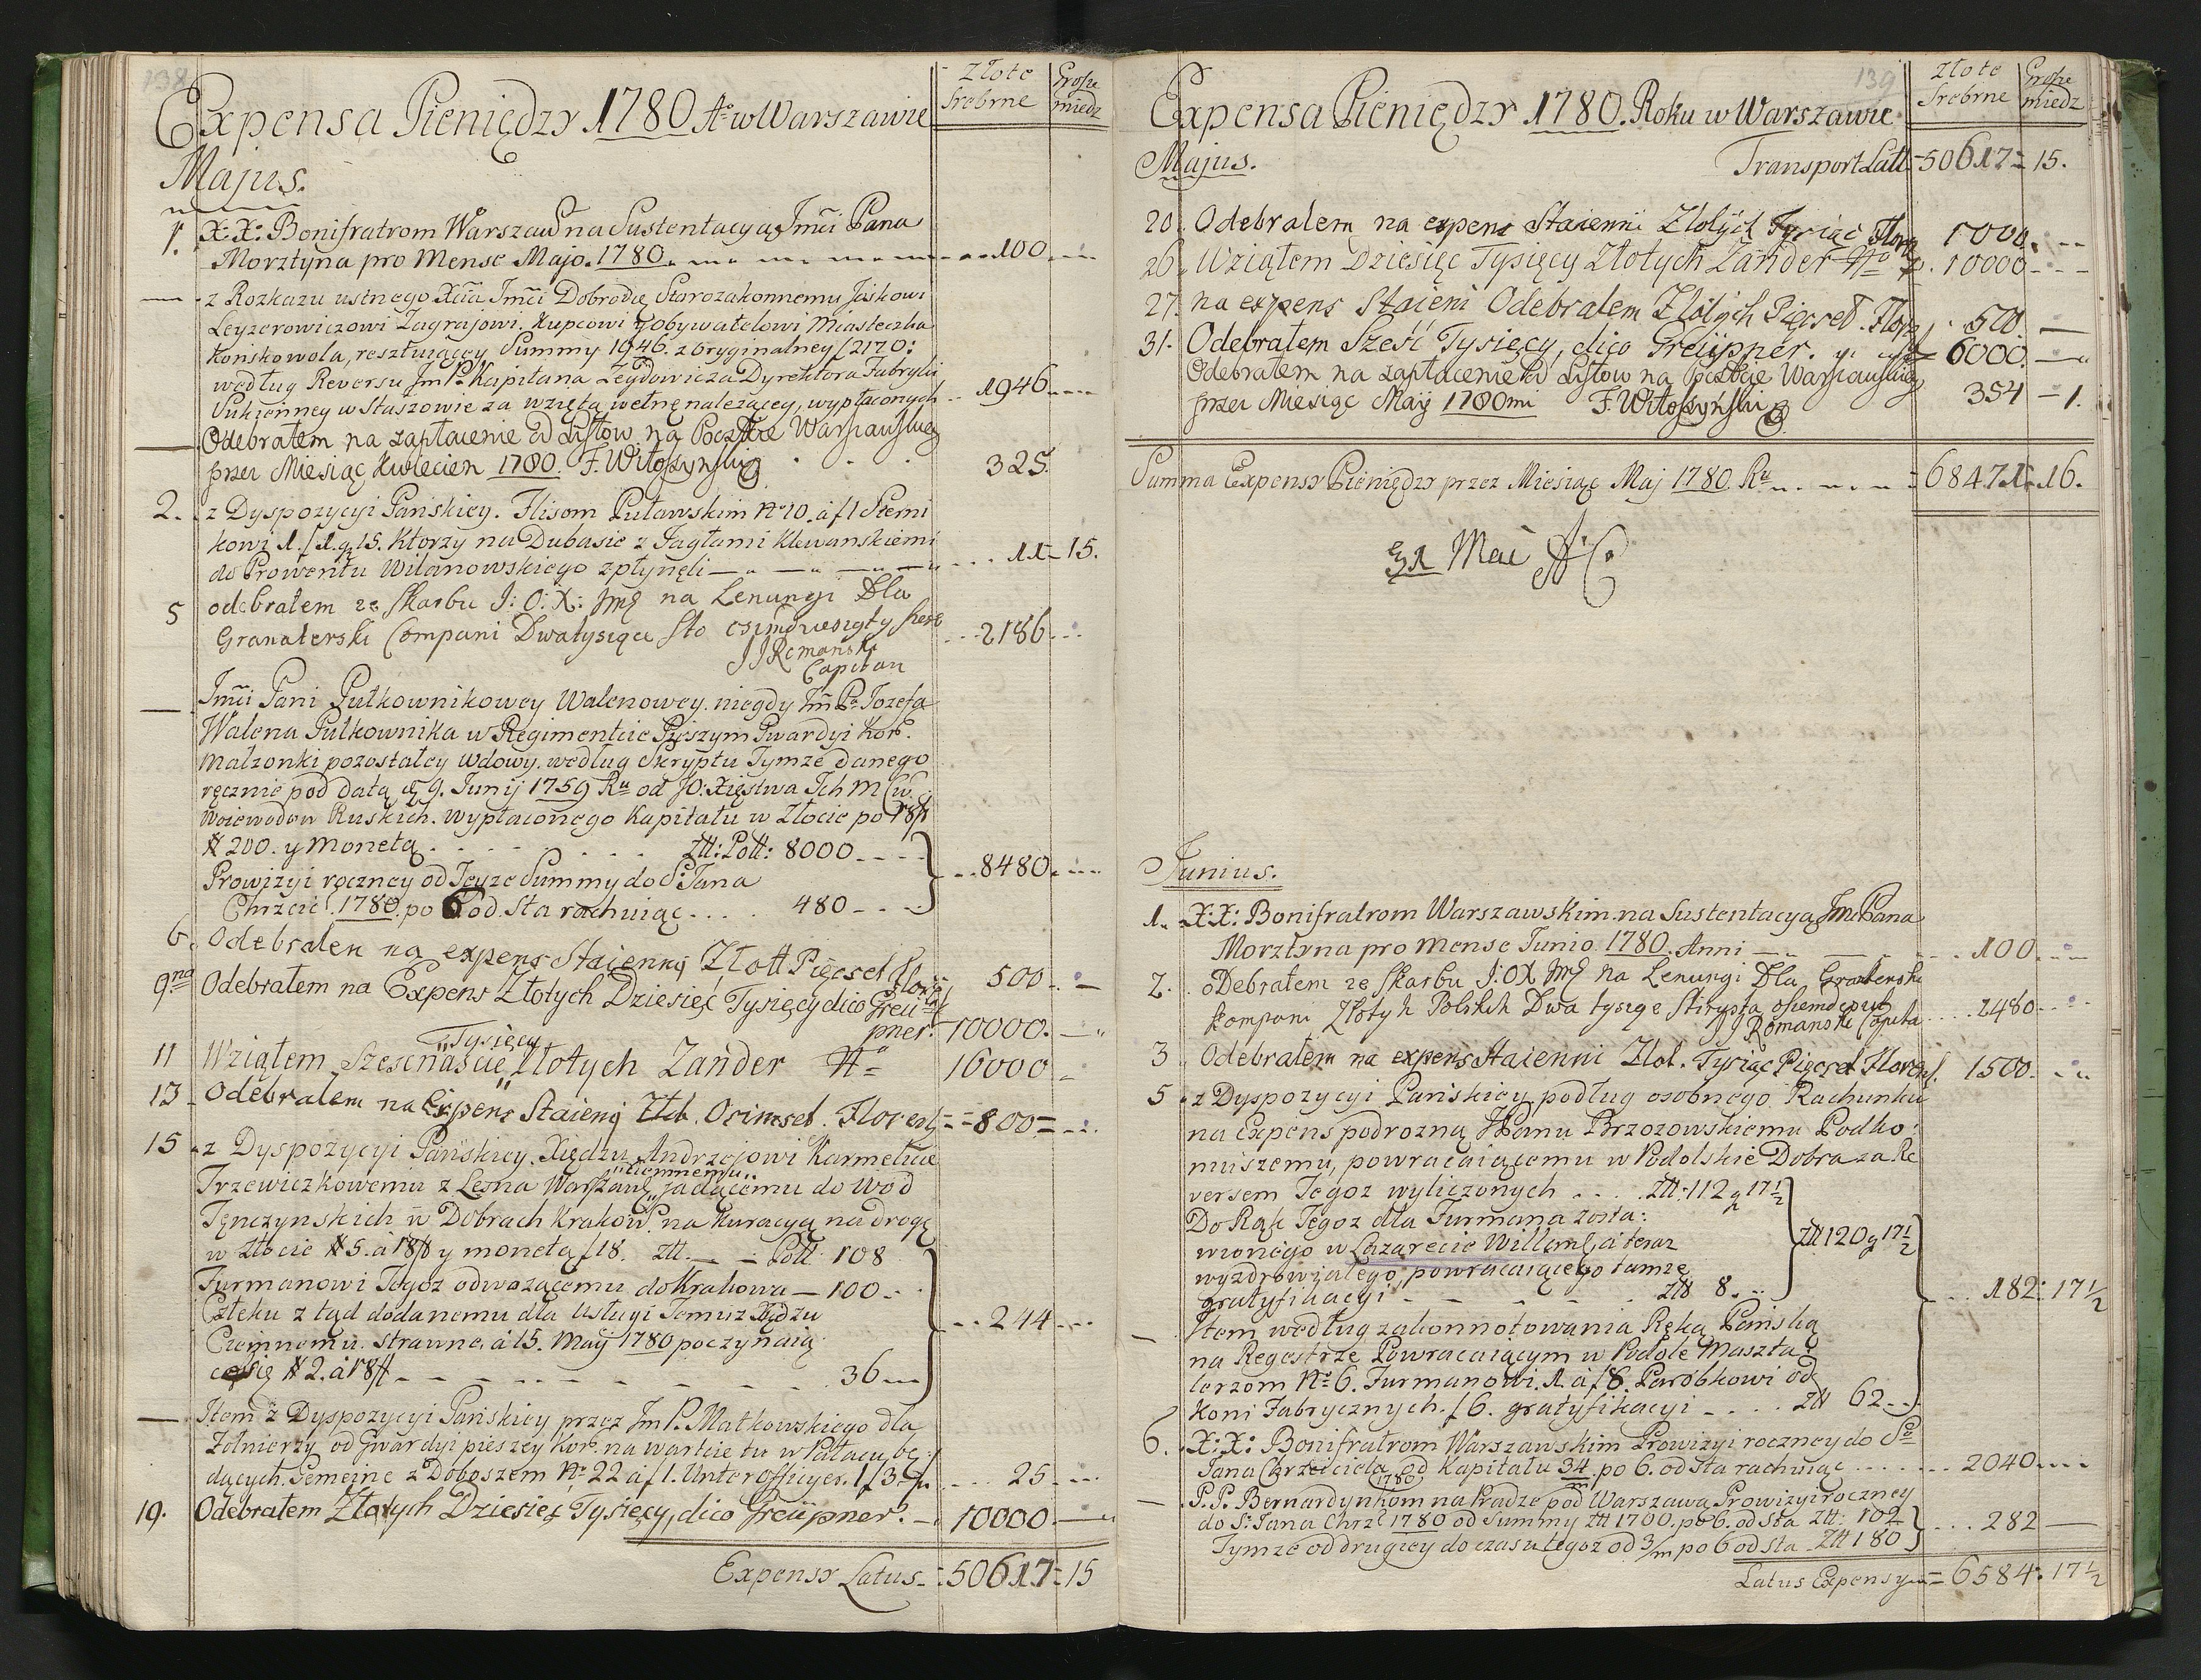 138
Expensa Pieniędzy 1780 Aº w Warszawie
Złote Srebrne
Grosze miedz
Majus.
1. X: X: Bonifratrom Warszaw na Sustentacyą Jmci Pana
Morztyna pro Mense Majo. 1780. 100
z Rozkazu ustnego Xcia Jmci Dobrodz Starozakonnemu Jaskowi
Leyzerowiczowi Zagrajowi. Kupcowi y obywatelowi Miasteczka
Końskowola, resztuiącey Summy 1946. z Oryginalney /2170:
według Reversu Jm P. Kapitana Zeydowicza Dyrektora Fabryki
Sukienney w Staszowie za wziętą wełnę należącey, wypłaconych 1946
Odebrałem na zapłacenie od Listow na Poczcie Warszauskiey
przez Miesiąc Kwiecien 1780. F. Witoszynski 325.
2. z Dyspozycyi Pańskiey. Flisom Puławskim Nº 10. á f 1 Sterni
kowi 1. f 1. g 15. Ktorzy na Dubasie z Jagłami Klewanskiemi
do Prowentu Wilanowskiego zpłynęli 11 - 15.
5 odebrałem ze Skarbu J: O: X: Jmę na Lenungi Dla
Granaterski Compani Dwatysiące sto osimdziesięty szesc 2186
J J Romanski
Capitan
Jmci Pani Pułkownikowey Walenowey. niegdy Jm Pa Jozefa
Walena Pułkownika w Regimentcie Pieszym Gwardyi Kor.
Małzonki pozostałey Wdowy. według Skryptu Tymze danego
ręcznie pod datą d. 9. Junij 1759 Ru od JO: Xięstwa Ich M
Woiewodow Ruskich. wypłaconego Kapitału w Złocie po 18 f
# 200. y Monetą Złł: Poll: 8000
Prowizyi roczney od Teyze Summy do S. Jana
Chrzcic. 1780. po 6 od Sta rachuiąc 480
8480
6. Odebralem na expens Staienny Złott Pięcset Floren 500
9na Odebrałem na Expens Złotych Dziesięć Tysięcy dico Greü=
pner. 10000.
Tysięcy
11 Wziąłem Szesnascie Złotych Zander 16000
13 Odebrałem na Expens Staieny Złtb. Osimset. Floren 800
15 z Dyspozycyi Pańskiey. Xiędzu Andrzejowi Karmelicie
Ciemnemu
Trzewiczkowemu z Leszna Warszaw jadącemu do Wod
Tęnczynskich w Dobrach Krakow. na Kuracyą na drogę
w Złocie # 5. á 18 f y monetą f 18. złł. Poll 108
Furmanowi Tegoz odwozącemu do Krakowa - 100
Człeku z tąd dodanemu dla Usługi Temuz Xiędzu
Ciemnemu. strawne á 15. Maij 1780 poczynaią
cesię # 2. á 18 f 36
244
Item z Dyspozycyi Pańskiey przez Jm P. Matkowskiego dla
Zołnierzy od Gwardyi pieszey Kor. na warcie tu w Pałacu bę
dących. Gemeine z Doboszem Nº 22 á f 1. Unterofficyer. 1 f 3. 25
19. Odebrałem Złotych Dziesięć Tysięcy, dico Greüpner. 10000
Expensy Latus 50617 = 15
139
Expensa Pieniędzy 1780. Roku w Warszawie
Złote Srebrne
Grosze miedz
Majus. Transport Latt 50617 = 15.
20. Odebralem na expens Staienni Złotych Tysiąc Floren 1000.
26. Wziąłem Dziesięc Tysięcy Złotych Zander 10000
27. na expens Staieni Odebralem Złotych Pięcset. Floren 500
31. Odebrałem Sześć Tysięcy, dico Greüpner. 6000.
Odebrałem na zapłacenie od Listow na Poczcie Warszauskiey
przez Miesiąc Maij 1780mi F. Witoszynski 354 - 1.
Summa Expensy Pieniędzy przez Miesiąc Maj 1780. Ru 68471 - 16.
31 Mai AC
Junius.
1. X: X: Bonifratrom Warszawskim. na Sustentacyą Jmci Pana
Morztyna pro Mense Junio 1780. Anni 100
2. oDebrałem ze Skarbu J: OX Jmę na Lenungi Dla Graterski
Kompani Złotyh Polskih Dwa tysięce sztirysta osiemdesiut 2480
J J Romanski Capita
3 Odebrałem na expens Staienni Złot. Tysiąc Pięcset Floren 1500.
5 z Dyspozycyi Pańskiey podług osobnego Rachunku
na Expens podrozną JPanu Brzozowskiemu Podko:
niuszemu, powracaiącemu w Podolskie Dobra za Re
versem Tegoz wyliczonych Złł. 112 g 17½
Do Rąk Tegoz dla Furmana zosta:
wionego w Lazarecie Willan, á teraz
wyzdrowiałego, powracaiącego tamze
gratyfikacyi Złł 8.
Złł 120 g 17½
Item według zakonnotowania Ręką Pańską
na Regestrze Powracaiącym w Podole Masztal
lerzom Nº 6. Furmanowi. 1. á f 8. Parobkowi od
Koni Fabrycznych. f 6. gratyfikacyi Złł 62
182: 17½
6. X: X: Bonifratrom Warszawskim Prowizyi roczney do S.
Jana Chrzciciela 1780 od Kapitału 34/m po 6. od sta rachuiąc 2040
P. P. Bernardynkom na Pradze pod Warszawą Prowizyi roczney
do S. Jana Chrz 1780 od Summy Złł 1700. po 6. od sta Złł: 102
Tymze od drugiey do czasu tegoz od 3/m po 6 od sta Złł 180
282
Latus Expensy 6584: 17½